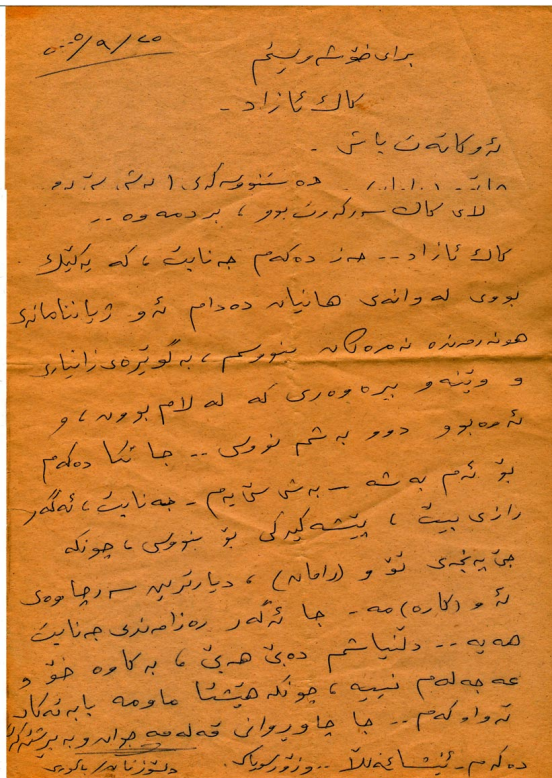 ٢٥/٩/٢٠٠٥
برای خۆشەویستم
کاک ئازاد -
ئەوکاتەت باش .
دەستنووسەکەی
لای کاک سەرکەوت بوو ، بردمەوە ..
کاک ئازاد .. حەز دەکەم جەنابت ، کە یەکێک
بووی لەوانەی هانیان دەدام ئەو ژیاننامانەی
هونەرمەندە نەمرەکان بنووسم ، بەگوێرەی زانیاری
و وێنەو بیرەوەری کە لەلام بوون ، و
ئەوەبوو دوو بەشم نووسی .. جا تکا دەکەم
بۆ ئەم بەشە - بەشی سێ یەم - جەنابت ، ئەگەر
رازی بیت ، پێشەکیەکی بۆ بنووسی ، چونکە
جێ پەنجەی تۆ و (رامان) ، دیارترین سەرچاوەی
ئەو (کارە)مە - جا ئەگەر رەزامەندی جەنابت
هەیە .. دڵنیاشم دەبێ هەبێ ، بەکاوە خۆ و
عەجەلەم نییە ، چونکە هێشتا ماومە بابەتەکان
تەواوکەم .. جا چاوەڕوانی قەلەمە جوانو بەپرشتەکەت
دەکەم - ئینشائەڵڵا .. وزۆر سوپاس.